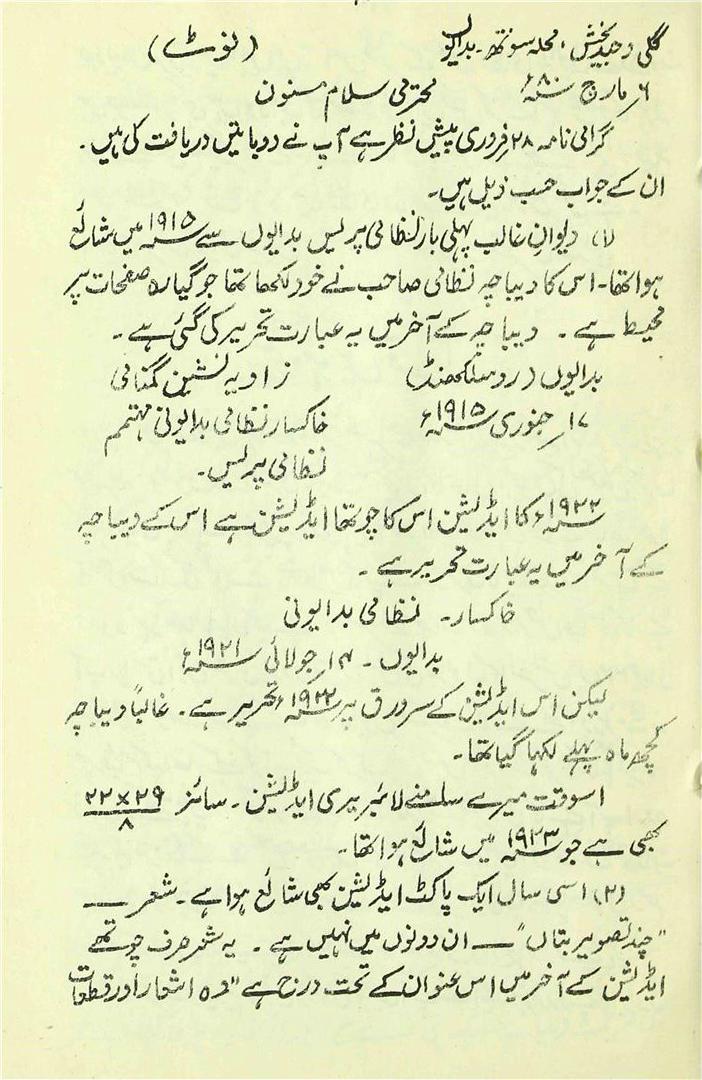 گلی وحید بخش، محلہ سوتھ۔ بدایوں (نوٹ)
۶؍ مارچ سنہ ۸۰ء محترمی سلام مسنون
گرامی نامہ ۲۸ فروری پیش نظر ہے آپ نے دو باتیں دریافت کی ہیں۔
ان کے جواب حسب ذیل ہیں۔
(۱) دیوانِ غالب پہلی بار نظامی پریس بدایوں سے سنہ ۱۹۱۵ میں شائع
ہوا تھا۔ اس کا دیباچہ نظامی صاحب نے خود لکھا تھا جو گیارہ صفحات پر
محیط ہے۔ دیباچہ کے آخر میں یہ عبارت تحریر کی گئی ہے۔
بدایوں (روہیلکھنڈ) زاویہ نشین گمنامی
۱۷؍ جنوری سنہ ۱۹۱۵ء خاکسار نظامی بدایونی مہتمم
نظامی پریس۔
سنہ ۱۹۲۲ء کا ایڈیشن اس کا چوتھا ایڈیشن ہے اس کے دیباچہ
کے آخر میں یہ عبارت تحریر ہے۔
خاکسار۔ نظامی بدایونی
بدایوں۔ ۱۴؍ جولائی سنہ ۱۹۲۱ء
لیکن اس ایڈیشن کے سرورق پر سنہ ۱۹۲۲ء تحریر ہے۔ غالباً دیباچہ
کچھ ماہ پہلے لکھا گیا تھا۔
اسوقت میرے سامنے لائبریری ایڈیشن۔ سائز ۲۲×۲۹/۸
بھی ہے جو سنہ ۱۹۲۳ میں شائع ہوا تھا۔
(۲) اسی سال ایک پاکٹ ایڈیشن بھی شائع ہوا ہے۔ شعر ــــ
"چند تصویر بتاں" ــــ ان دونوں میں نہیں ہے۔ یہ شعر صرف چوتھے
ایڈیشن کے آخر میں اس عنوان کے تحت درج ہے "وہ اشعار اور قطعات